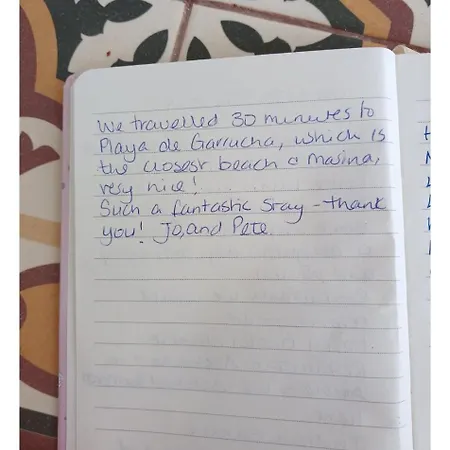 We travelled 30 minutes to
Playa de Garrucha, which is
the closest beach & marina,
very nice!
Such a fantastic stay - thank
you! Jo, and Pete.